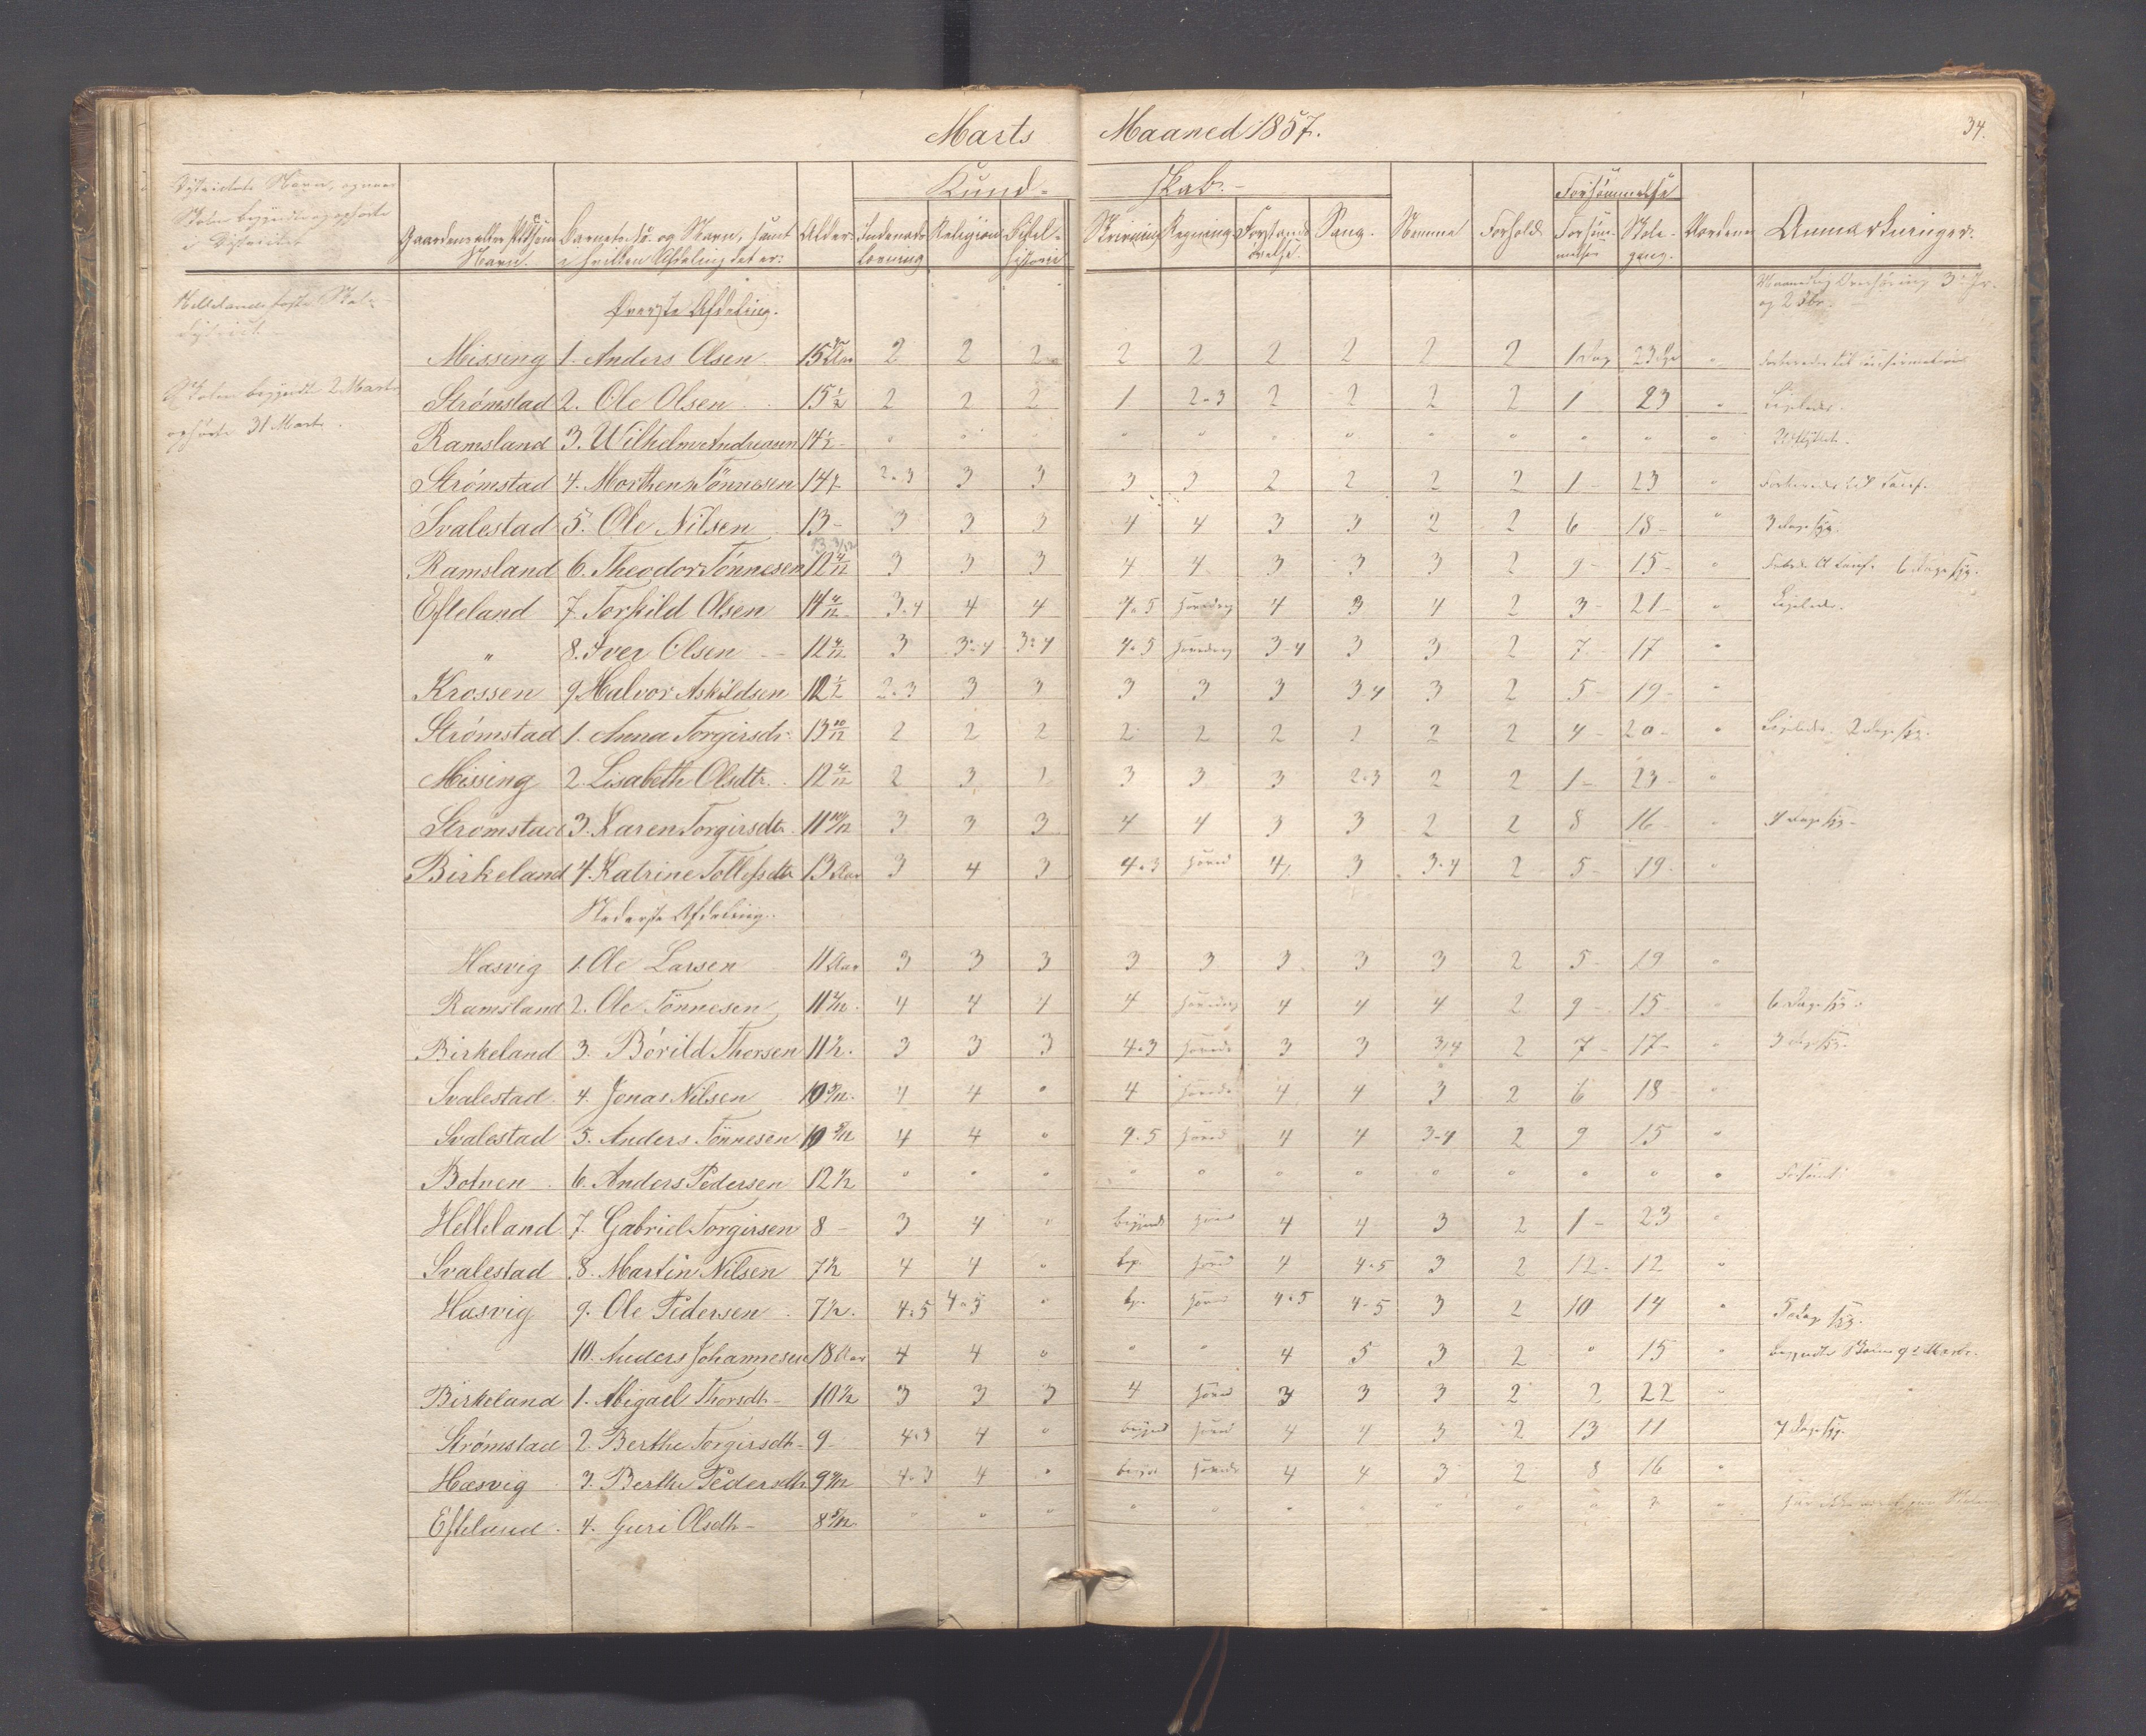 Marts Maaned 1857.
34.
Distriktets Navn, og naar Skolen begyndte og ophørte i Distriktet
Gaardens eller Pladsens Navn.
Barnets No. og Navn, samt i hvilken Afdeling det er:
Alder
Kundskab.
Indenadslæsning
Religion
Bibelhistorie
Skrivning
Regning
Forstandsøvelse.
Sang.
Nemme
Forhold
Forsømmelse
Forsømmelse
Skolegang.
Anmærkninger.
Hellelands faste Skoledistrict
Øverste Afdeling.
Maanedlig
Skolen begyndte 2 Marts
ophørte 31 Marts.
Missing 1. Anders Olsen 15 Aar 2 2 2 2 2 2 2 2 2 1 Dag 23 Forberedes til Confirmation
Strømstad 2. Ole Olsen 15½ 2 2 2 1 2-3 2 2 2 2 1 23 " Ligeledes.
Ramsland 3. Wilhelm Andreasen 14½ " " " " " " " " " " " " Udflyttet.
Strømstad 4. Morthen Tönnesen 14½ 2-3 3 3 3 3 2 2 2 2 1 - 23 " Forberedes til Conf.
Svalestad 5. Ole Nilsen 13 - 3 3 3 4 4 3 3 2 2 6 18 - " 3 Dage syg.
Ramsland 6. Theodor Tönnesen 12 3 3 3 4 4 3 3 3 2 9 - 15 - " 6 Dage syg.
Efteland 7. Torkild Olsen 14 4/12 3-4 4 4 4-5 4 3 4 2 3 - 21 - " Ligeledes.
" 8. Iver Olsen - 12 3 3-4 3-4 4-5 3-4 3 3 2 7 - 17 "
Krossen 9 Halvor Askildsen 12½ 2-3 3 3 3 3 3 3-4 3 2 5 - 19 - "
Strømstad 1. Anna Torgirsdr. 13 10/12 2 2 2 2 2 2 2 2 2 4 - 20 - " Ligeledes. 2 Dage syg.
Missing 2. Lisabeth Olsdtr. 12 2 3 3 3 3 3 2-3 2 2 1 - 23 - "
Strømstad 3. Karen Torgirsdtr. 11 10/12 3 3 3 4 4 3 3 2 2 8 16 - " 4 Dage syg -
Birkeland 4. Katrine Tollefsdtr 13 Aar 3 4 3 4-3 4 3 3-4 2 5 - 19. "
Nederste Afdeling.
Hæsvig 1. Ole Larsen 11 Aar 3 3 3 3 3 3 3 3 2 5 - 19 "
Ramsland 2. Ole Tönnesen 11 4 4 4 4 4 4 4 2 9 - 15 - " 6 Dage syg.
Birkeland 3. Börild Thorsen 11½. 3 3 3 4-3 3 3 3-4 2 7 - 17 - " 3 Dage syg.
Svalestad 4. Jonas Nilsen 10 4 4 " 4 4 4 3 2 6 18 - "
Svalestad 5. Anders Tönnesen 10 4 4 " 4-5 4 4 3-4 2 9 15 "
Botnen 6. Anders Pedersen 12½ " " " " " " " " " " " " Forsømt.
Helleland 7. Gabriel Torgirsen 8 - 3 4 " begyndt 4 4 3 2 1 - 23 "
Svalestad 8. Martin Nilsen 7½ 4 4 " bg. 4 4-5 3 2 12 - 12 "
Hæsvig 9. Ole Pedersen 7½. 4-5 4-5 " bg. 4-5 4-5 3 2 10 14 " 5 Dage syg.
10. Anders Johannesen 18 Aar 4 4 " " " 4 5 3 2 " 15 " begyndte Skolen 9de Marts.
Birkeland 1. Abigael Thorsdtr - 10½ 3 3 3 4 3 3 3 2 2 22 "
Strømstad 2. Berthe Torgirsdtr - 9 - 4-3 4 " begyndt 4 4 3 2 13 11 7 Dage syg.
Hæsvig 3. Berthe Pedersdtr 9 4-3 4 " 4 4 3 2 8 16 "
Efteland. 4. Guri Olsdtr - 8 " " " " " " " " " "